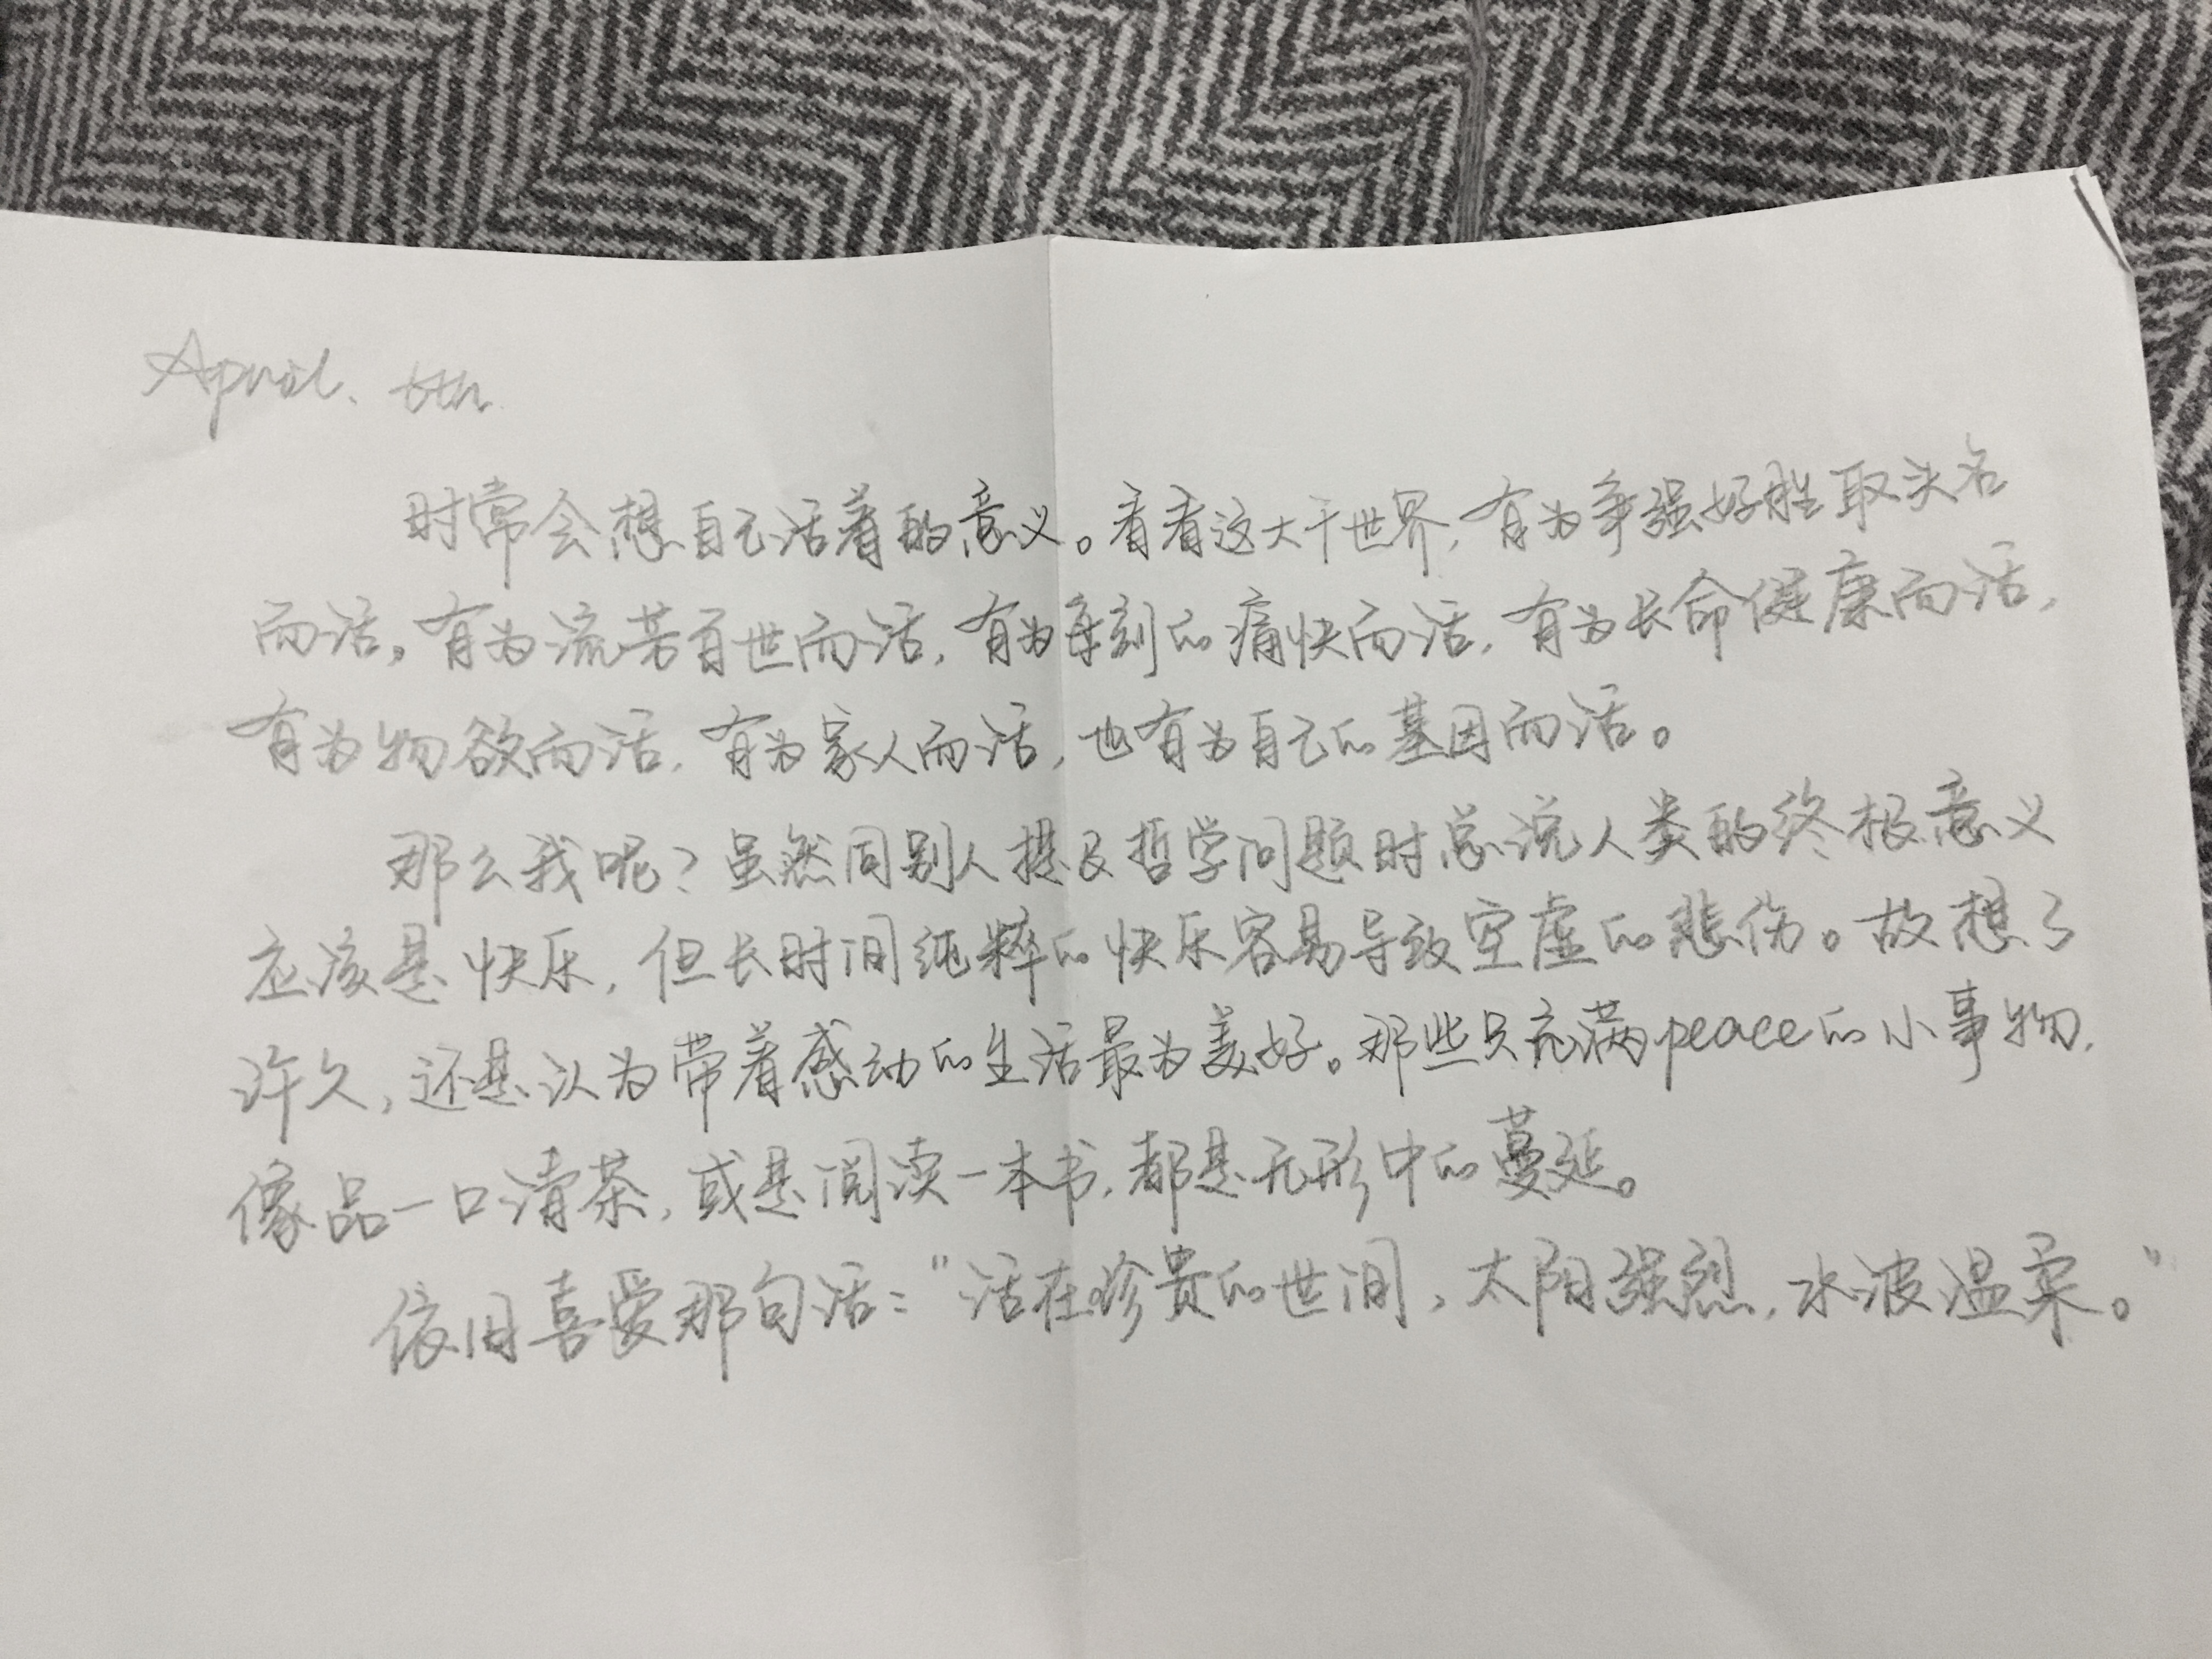 April. 6th
时常会想自己活着的意义。看看这大千世界,有为争强好胜取头名
而活,有为流芳百世而活,有为每刻的痛快而活,有为长命健康而活,
有为物欲而活,有为家人而活,也有为自己的基因而活。
那么我呢?虽然同别人提及哲学问题时总说人类的终极意义
应该是快乐,但长时间纯粹的快乐容易导致空虚的悲伤。故想了
许久,还是认为带着感动的生活最为美好。那些只充满peace的小事物,
像品一口清茶,或是阅读一本书,都是无形中的蔓延。
依旧喜爱那句话:"活在珍贵的世间,太阳强烈,水波温柔。"